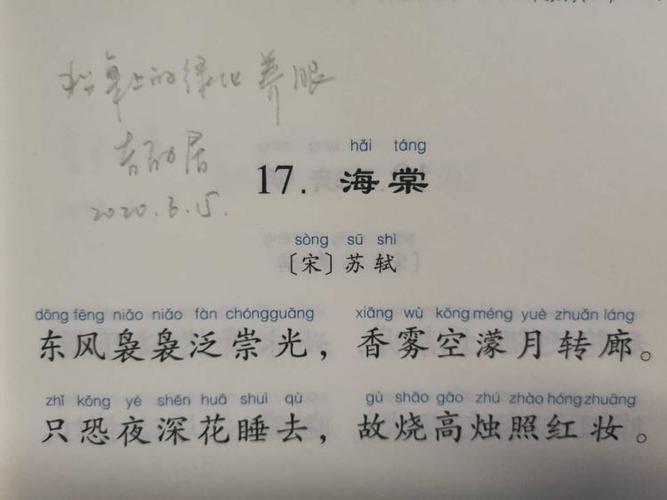 的绿化养眼
2020.6.15.
hǎi táng
17. 海棠
sòng sū shì
〔宋〕苏轼
dōng fēng niǎo niǎo fàn chóngguāng xiāng wù kōng méng yuè zhuǎn láng
东风袅袅泛崇光，香雾空濛月转廊。
zhǐ kǒng yè shēn huā shuì qù gù shāo gāo zhú zhào hóng zhuāng
只恐夜深花睡去，故烧高烛照红妆。